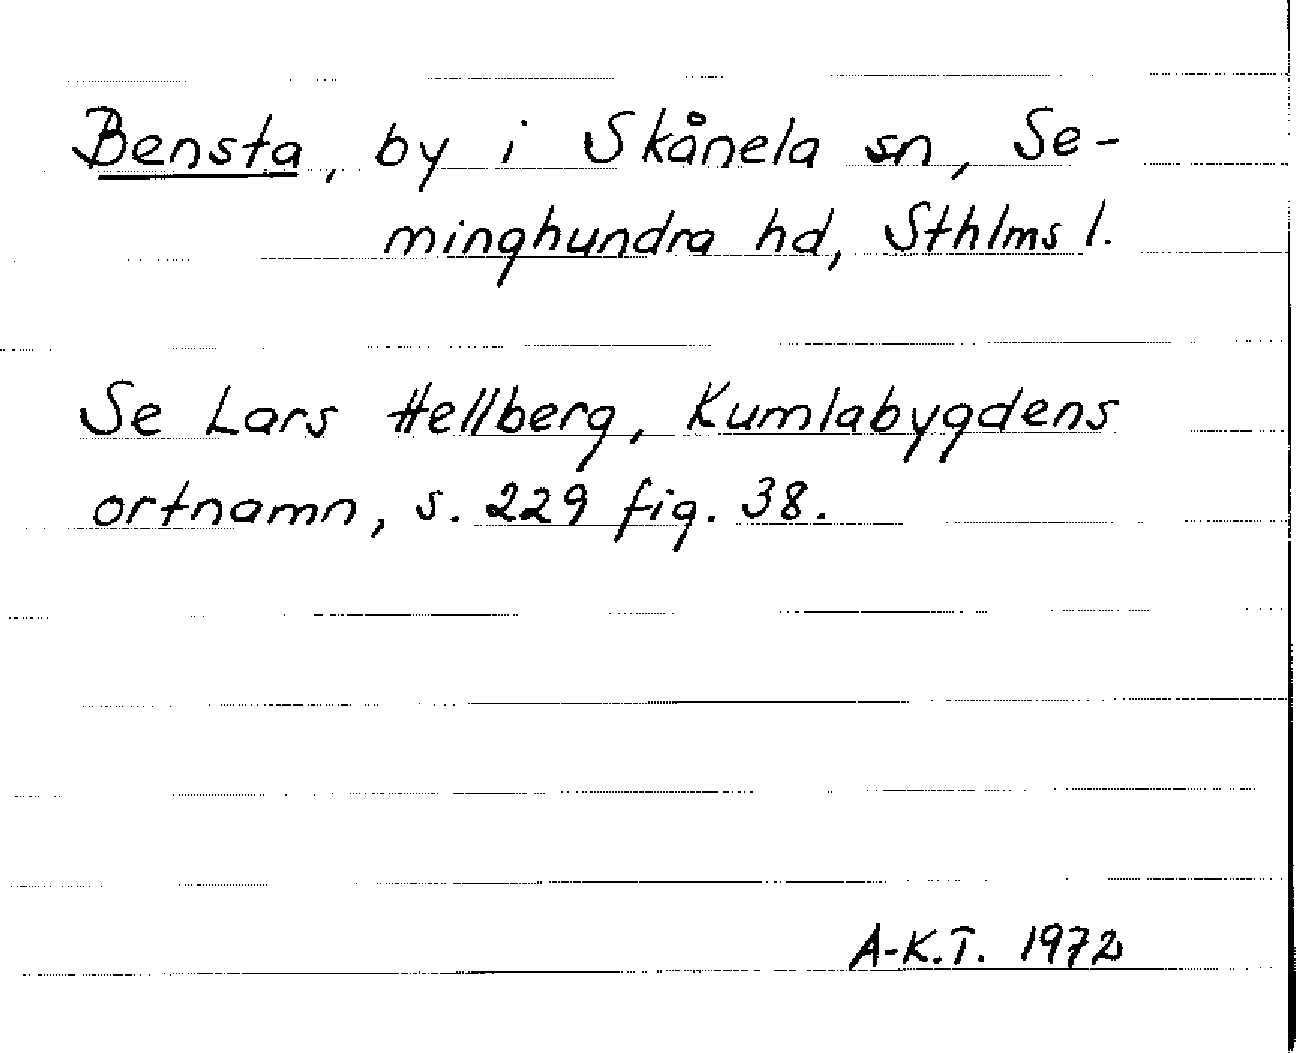 Bensta, by i Skånela sn, Se-
minghundra hd, Sthlms l.
Se Lars Hellberg, Kumlabygdens
ortnamn, s. 229 fig. 38.
A-K.T. 1972